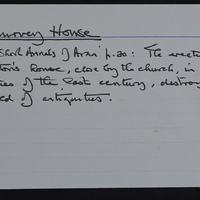 House
Short Annals of Aran' p. 20: The erection
House, close by the church, in
of the last century, destroy
of antiquities.